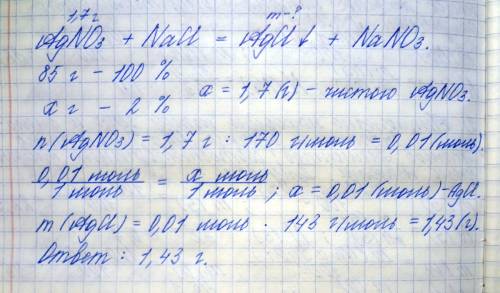 1,7г m-?
AgNO3 + NaCl = AgCl↓ + NaNO3.
85 г - 100 %
x г - 2 %
x = 1,7(г) - чистого AgNO3.
n(AgNO3) = 1,7 г : 170 г/моль = 0,01(моль).
0,01 моль / 1 моль = x моль / 1 моль ; x = 0,01(моль)-AgCl.
m(AgCl) = 0,01 моль · 143 г/моль = 1,43(г).
Ответ : 1,43 г.